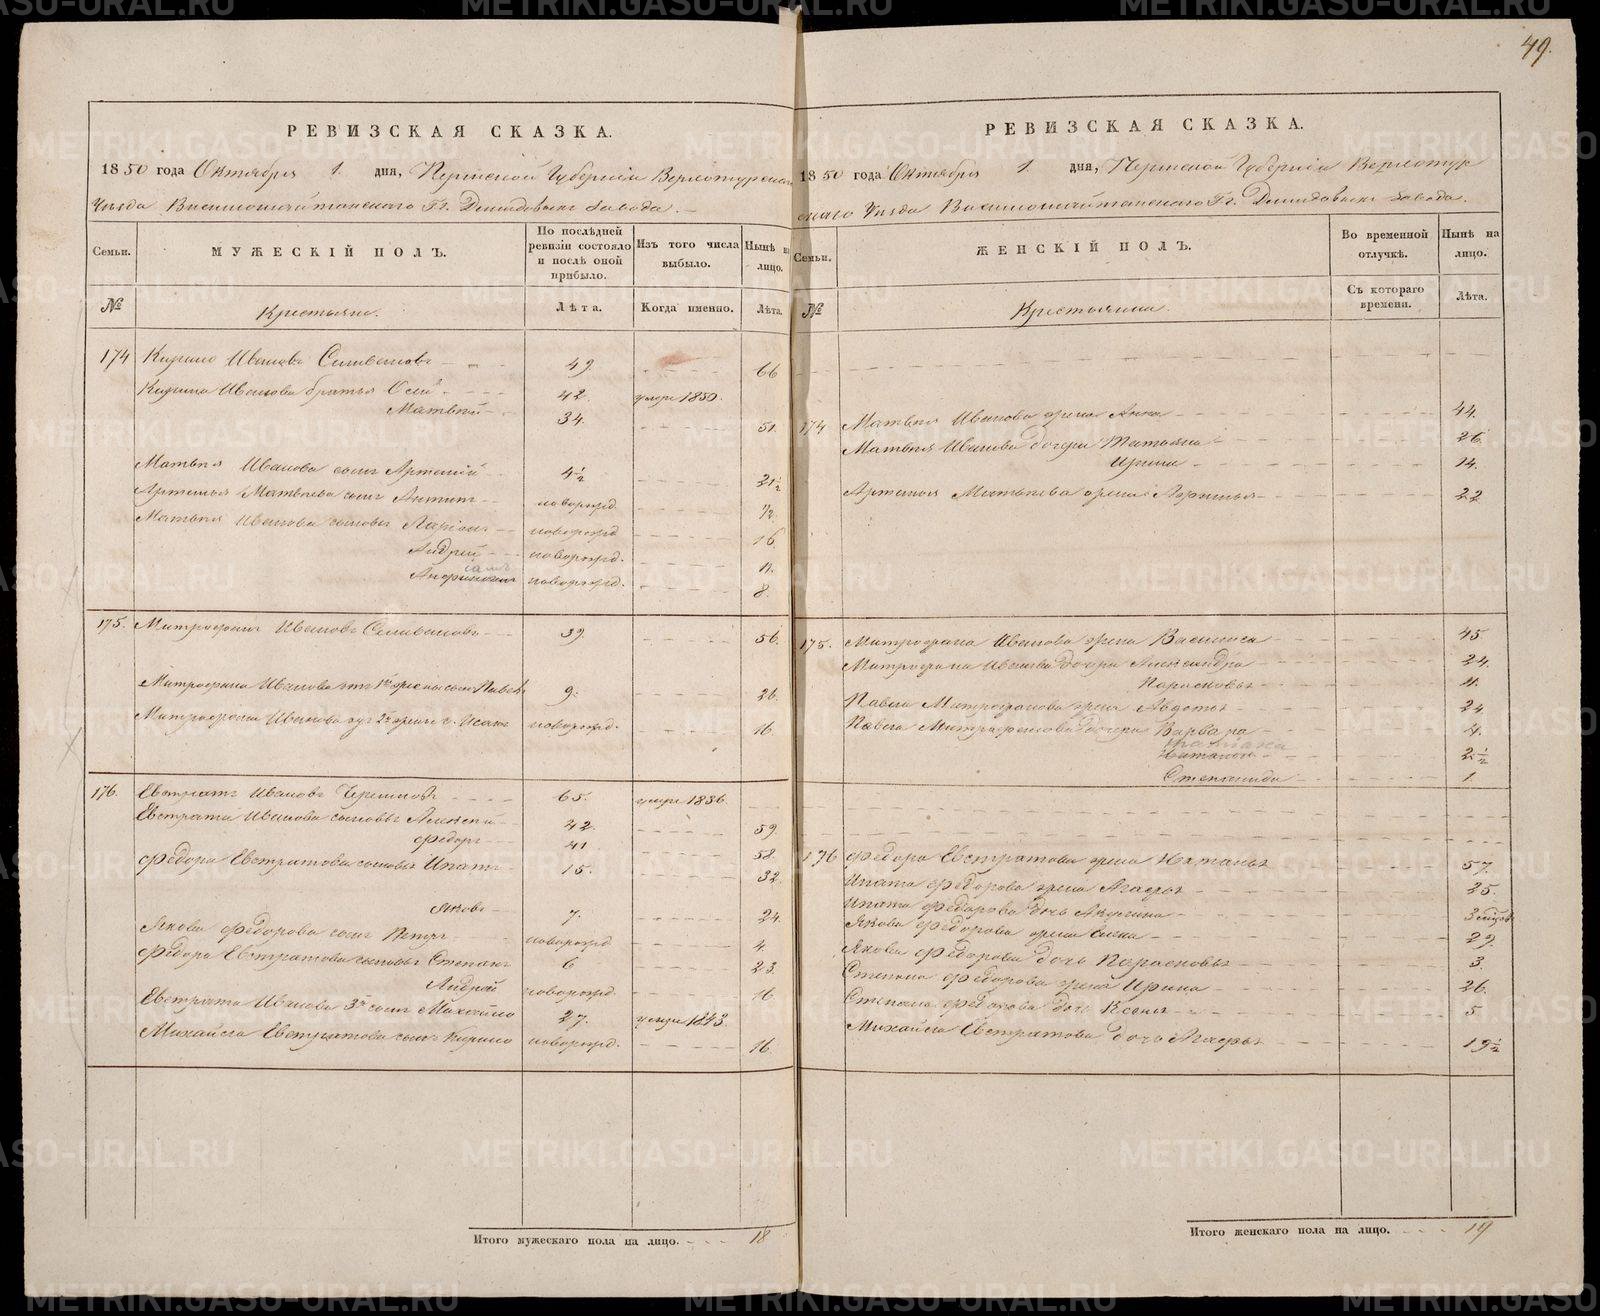 49.
РЕВИЗСКАЯ СКАЗКА.
1850 года Октября 1. дня, Пермской Губерніи Верхотурскаго
Уѣзда Висимошайтанского Гг. Демидовыхъ Завода.
Семьи.
МУЖЕСКІЙ ПОЛЪ.
По послѣдней ревизіи состояло и послѣ оной прибыло.
Изъ того числа выбыло.
Нынѣ на лицо.
№
Крестьяне.
Лѣта.
Когда именно.
Лѣта.
174 Кирило Ивановъ Селивановъ 49. 66
Кирила Иванова братья Осипъ 42. умеръ 1850.
Матвѣй 34. 51.
Матвѣя Иванова сынъ Артемій 4½ 21½
Артемья Матвѣева сынъ новорожд. ½
Матвѣя Иванова сыновья Ларіонъ новорожд. 16.
Андрей новорожд. 11.
новорожд. 8.
175. Митрофанъ Ивановъ Селивановъ 39. 56.
Митрофана Иванова отъ 1й жены сынъ Павелъ 9. 26.
Митрофана Иванова отъ 2й жены с. новорожд. 16
176. Евстратъ Ивановъ 65. умеръ 1836.
Евстрата Иванова сыновья Алексѣй 42. 59.
Федоръ 41 58.
Федора Евстратова сыновья Ипатъ 15. 32.
Яковъ 7. 24.
Якова Федорова сынъ Петръ новорожд. 4.
Федора Евстратова сыновья Степанъ 6 23.
Андрей новорожд. 16
Евстрата Иванова 3й сынъ Михайло 27. умеръ 1843.
Михайла Евстратова сынъ Кирило новорожд. 16.
Итого мужескаго пола на лицо. 18
РЕВИЗСКАЯ СКАЗКА.
1850 года Октября 1. дня, Пермской Губерніи Верхотур
скаго Уѣзда Висимошайтанского Гг. Демидовыхъ Завода.
Семьи.
ЖЕНСКІЙ ПОЛЪ.
Во временной отлучкѣ.
Нынѣ на лицо.
№
Крестьянки.
Съ котораго времени.
Лѣта.
174 Матвѣя Иванова жена Анна 44.
Матвѣя Иванова дочери Татьяна 26.
Ирина 14.
Артемья Матвѣева жена 22
175. Митрофана Иванова жена Василиса 45
Митрофана Иванова дочери Александра 24.
Парасковья 11.
Павла Митрофанова жена Авдотья 24
Павла Митрофанова дочери Варвара 4.
2½
Степанида 1.
176 Федора Евстратова жена Наталья 57.
Ипата Федорова жена Агафья 25.
Ипата Федорова дочь Акулина
Якова Федорова жена Елена 29.
Якова Федорова дочь Парасковья 3.
Степана Федорова жена Ирина 26.
Степана Федорова дочь Ксенья 5
Михайла Евстратова дочь Агафья 19½
Итого женскаго пола на лицо. 19
METRIKI.GASO-URAL.RU